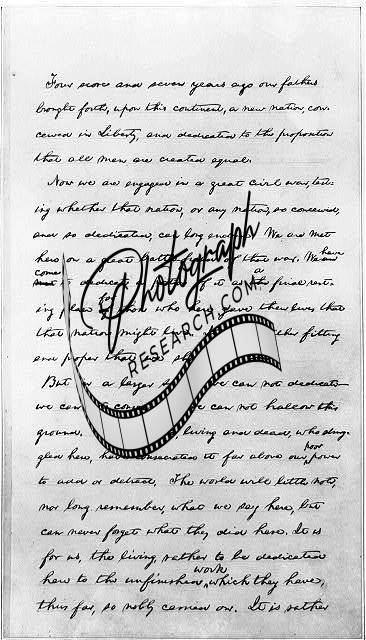 Four score and seven years ago our fathers
brought forth, upon this continent, a new nation, con-
ceived in Liberty, and dedicated to the proposition
that all men are created equal.
Now we are engaged in a great civil war, test-
ing whether that nation, or any nation, so conceived,
and so dedicated, can long We are met
here on a great of that war. We have
come
to dedicate a of it as a final rest-
ing place for who here gave their lives that
that nation might this fitting
and proper that
But in a larger we can not dedicate
we can not we can not hallow this
ground. living and dead, who strug-
gled here, have consecrated it far above our poor power
to add or detract. The world will little note,
nor long remember, what we say here, but
can never forget what they did here. It is
for us, the living, rather to be dedicated
here to the unfinished work which they have,
thus far, so nobly carried on. It is rather
Photograph
RESEARCH.COM